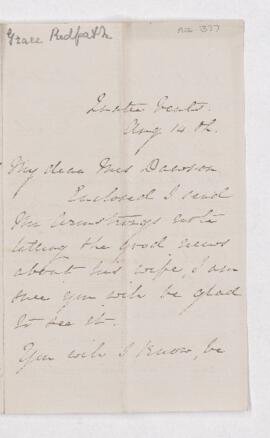 Grace Redpath
Aug 14th.
My dear Mrs Dawson
Enclosed I send
Mr Armstrongs note
telling the good news
about his wife, I am
sure you will be glad
to see it.
You will I know, be